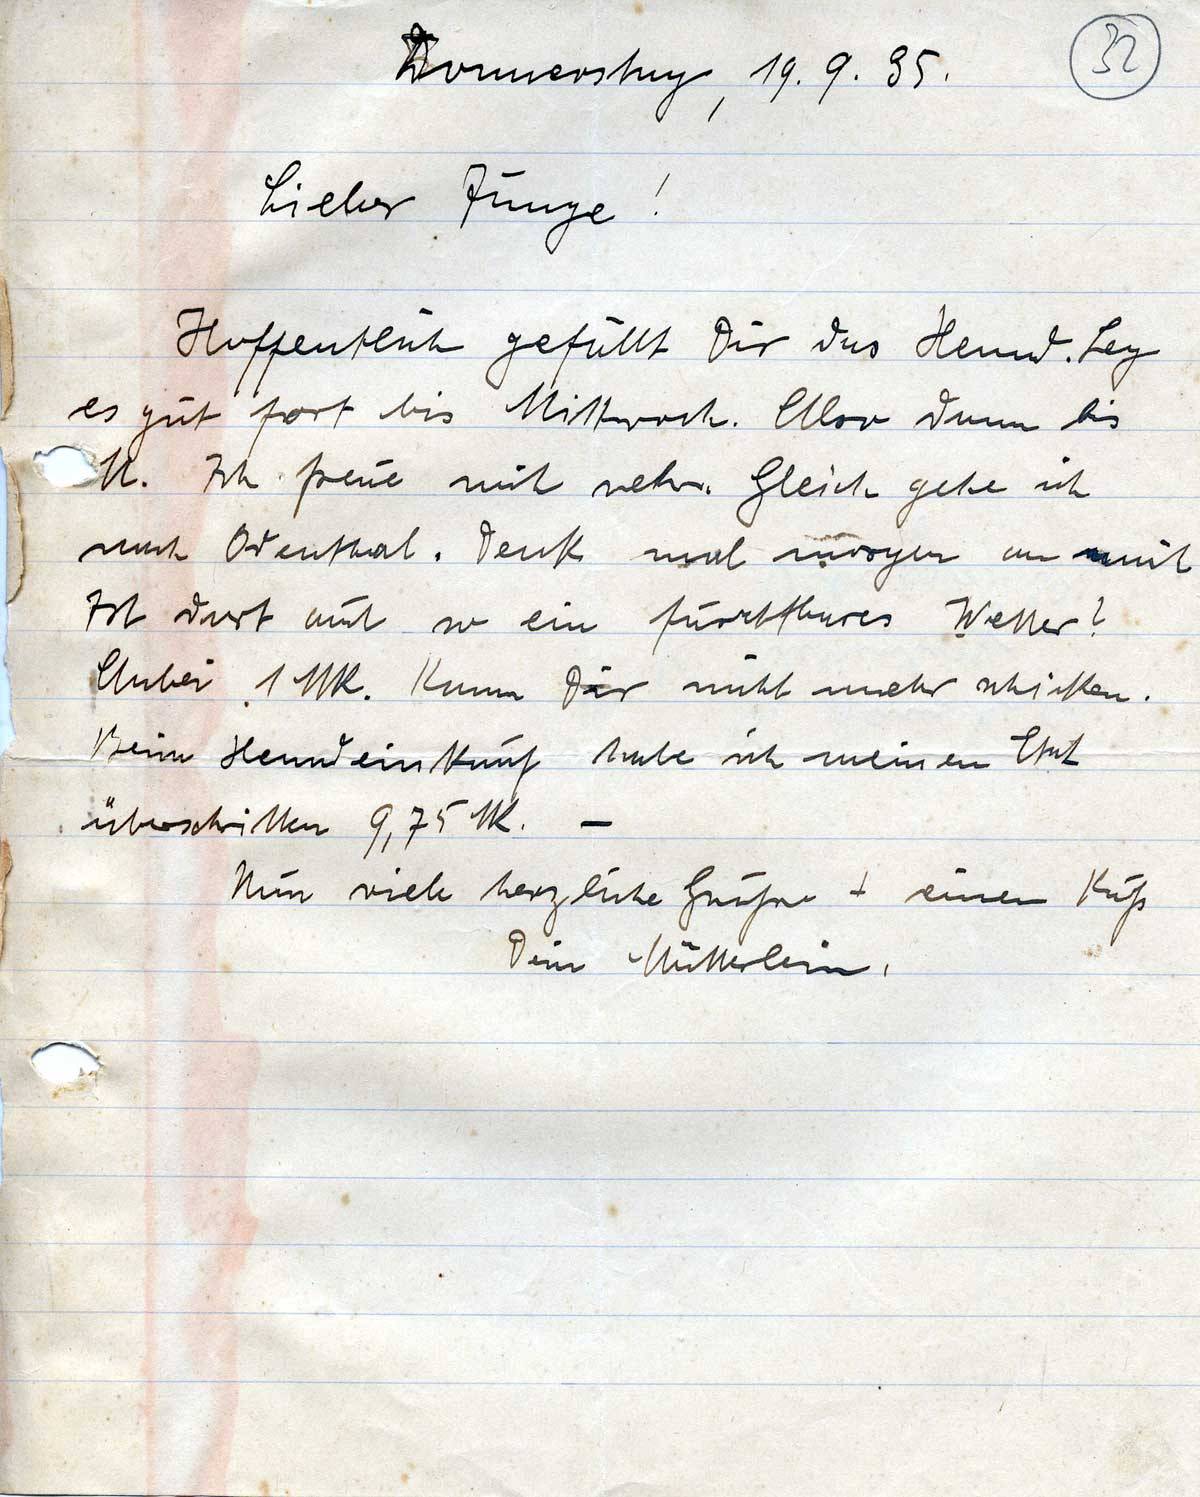 32
Donnerstag, 19.9.35.
Lieber Junge!
Hoffentlich gefällt Dir das Hemd. Leg
es gut fort bis Mittwoch. Also dann bis
M. Ich freue mich sehr. Gleich gehe ich
nach Odenthal. Denk mal morgen an mich
Ist dort auch so ein furchtbares Wetter?
Anbei 1 MK. Kann Dir nicht mehr schicken.
Beim Hemdeinkauf habe ich meinen
überschritten 9,75 MK. —
Nun viele herzliche Grüße + einen Kuß
Dein Mütterlein.